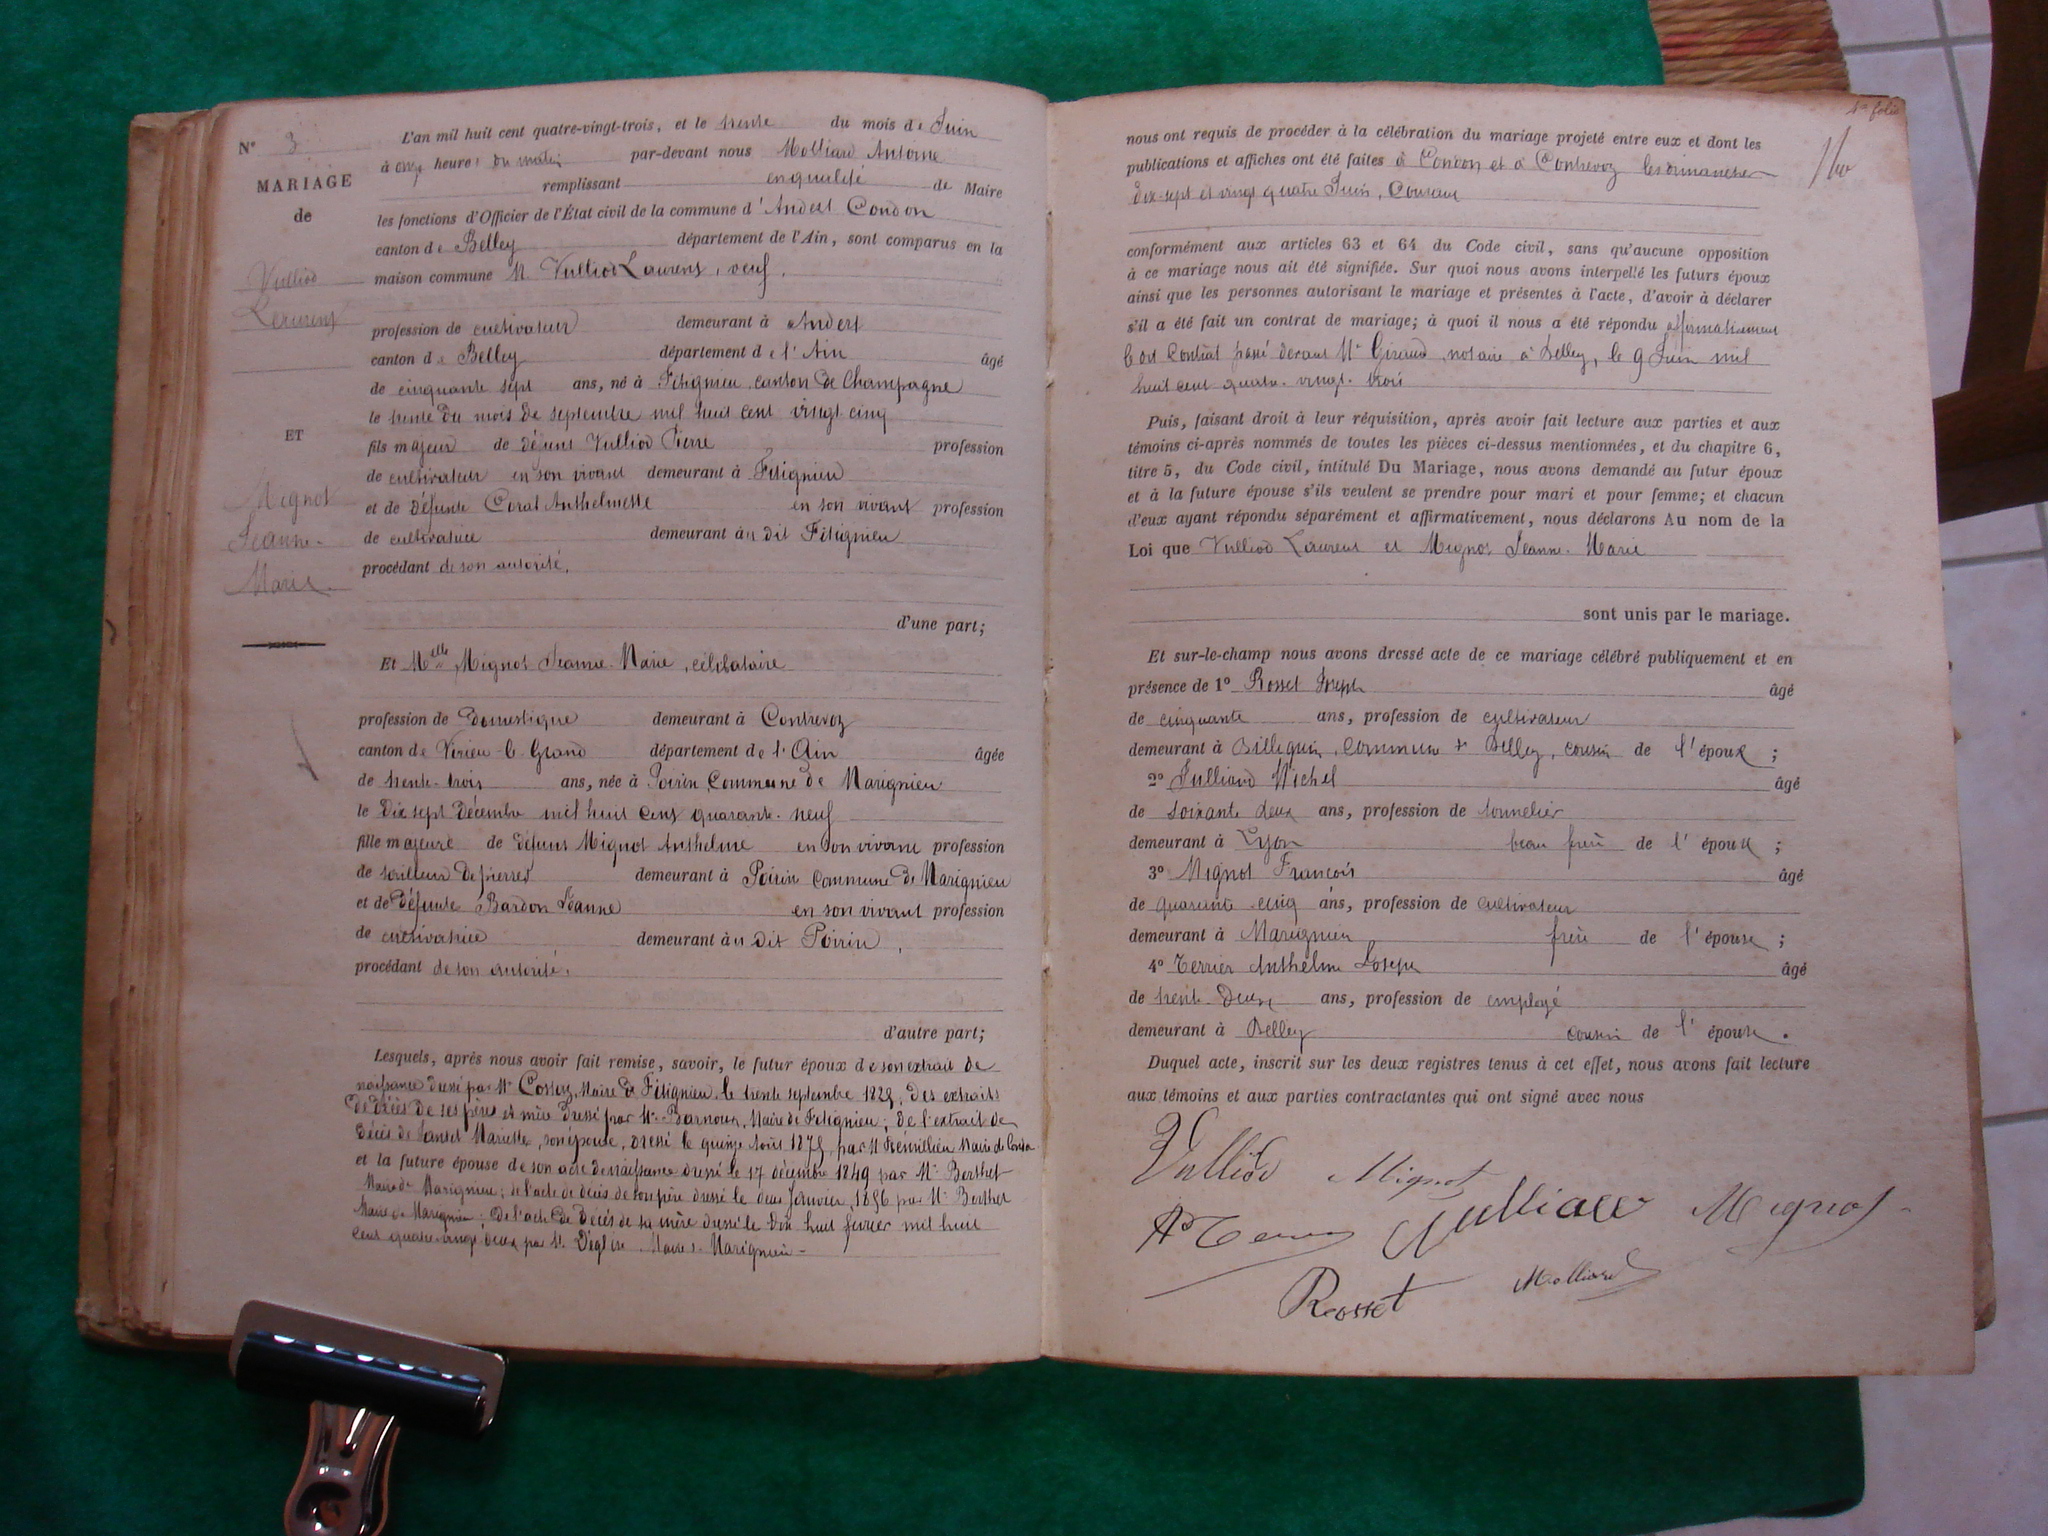 N° 3
MARIAGE
de
Vulliod
Laurent
ET
Mignot
Jeanne-
Marie
L'an mil huit cent quatre-vingt-trois, et le trente du mois de Juin
à onze heures du matin par-devant nous Molliard Antoine
remplissant en qualité de Maire
les fonctions d'Officier de l'État civil de la commune d'Andert Condon
canton de Belley département de l'Ain, sont comparus en la
maison commune M. Vulliod Laurent, veuf,
profession de cultivateur demeurant à Andert
canton de Belley département de l'Ain âgé
de cinquante sept ans, né à Fitignieu, canton de Champagne
le trente du mois de septembre mil huit cent vingt cinq
fils majeur de défunt Vulliod Pierre profession
de cultivateur en son vivant demeurant à Fitignieu
et de défunte Corat Anthelmette en son vivant profession
de cultivatrice demeurant au dit Fitignieu
procédant de son autorité.
d'une part;
Et Melle Mignot Jeanne-Marie, célibataire
profession de Domestique demeurant à Contrevoz
canton de Virieu-le-Grand département de l'Ain âgée
de trente-trois ans, née à Poirin Commune de Marignieu
le Dix sept Décembre mil huit cent quarante-neuf
fille majeure de défunt Mignot Anthelme en son vivant profession
de tailleur de pierres demeurant à Poirin Commune de Marignieu
et de Défunte Bardon Jeanne en son vivant profession
de cultivatrice demeurant au dit Poirin,
procédant de son autorité.
d'autre part;
Lesquels, après nous avoir fait remise, savoir, le futur époux de son extrait de
naissance dressé par Mr Maire de Fitignieu, le trente septembre 1825, des extraits
de décès de ses père et mère dressé par Mr Maire de Fitignieu; de l'extrait de
Décès de Mariette, son épouse, dressé le quinze Août par M Maire de
et la future épouse de son acte de naissance dressé le 17 décembre 1849 par Mr Berthet
Maire de Marignieu; de l'acte de décès de son père dressé le deux Janvier 1856 par Mr Berthet
Maire de Marignieu; De l'acte de Décès de sa mère dressé le Dix huit février mil huit
cent quatre-vingt deux par Mr Maire Marignieu-
nous ont requis de procéder à la célébration du mariage projeté entre eux et dont les
publications et affiches ont été faites à Condon et à Contrevoz les dimanches
dix-sept et vingt quatre Juin, Courant
conformément aux articles 63 et 64 du Code civil, sans qu'aucune opposition
à ce mariage nous ait été signifiée. Sur quoi nous avons interpellé les futurs époux
ainsi que les personnes autorisant le mariage et présentes à l'acte, d'avoir à déclarer
s'il a été fait un contrat de mariage; à quoi il nous a été répondu affirmativement
Contrat passé devant Me Giraud, notaire à Belley, le 9 Juin mil
huit cent quatre-vingt-trois
Puis, faisant droit à leur réquisition, après avoir fait lecture aux parties et aux
témoins ci-après nommés de toutes les pièces ci-dessus mentionnées, et du chapitre 6,
titre 5, du Code civil, intitulé Du Mariage, nous avons demandé au futur époux
et à la future épouse s'ils veulent se prendre pour mari et pour femme; et chacun
d'eux ayant répondu séparément et affirmativement, nous déclarons Au nom de la
Loi que Vulliod Laurent et Mignot Jeanne-Marie
sont unis par le mariage.
Et sur-le-champ nous avons dressé acte de ce mariage célébré publiquement et en
présence de 1° Rosset Joseph âgé
de cinquante ans, profession de cultivateur
demeurant à commune de Belley, cousin de l'époux ;
2° Julliand Michel âgé
de soixante deux ans, profession de tonnelier
demeurant à Lyon beau frère de l'époux ;
3° Mignot François âgé
de quarante-cinq ans, profession de cultivateur
demeurant à Marignieu frère de l'épouse ;
4° Terrier Anthelme Joseph âgé
de trente deux ans, profession de employé
demeurant à Belley cousin de l'épouse.
Duquel acte, inscrit sur les deux registres tenus à cet effet, nous avons fait lecture
aux témoins et aux parties contractantes qui ont signé avec nous
Vulliod Mignot
Mignot
Rosset Molliard